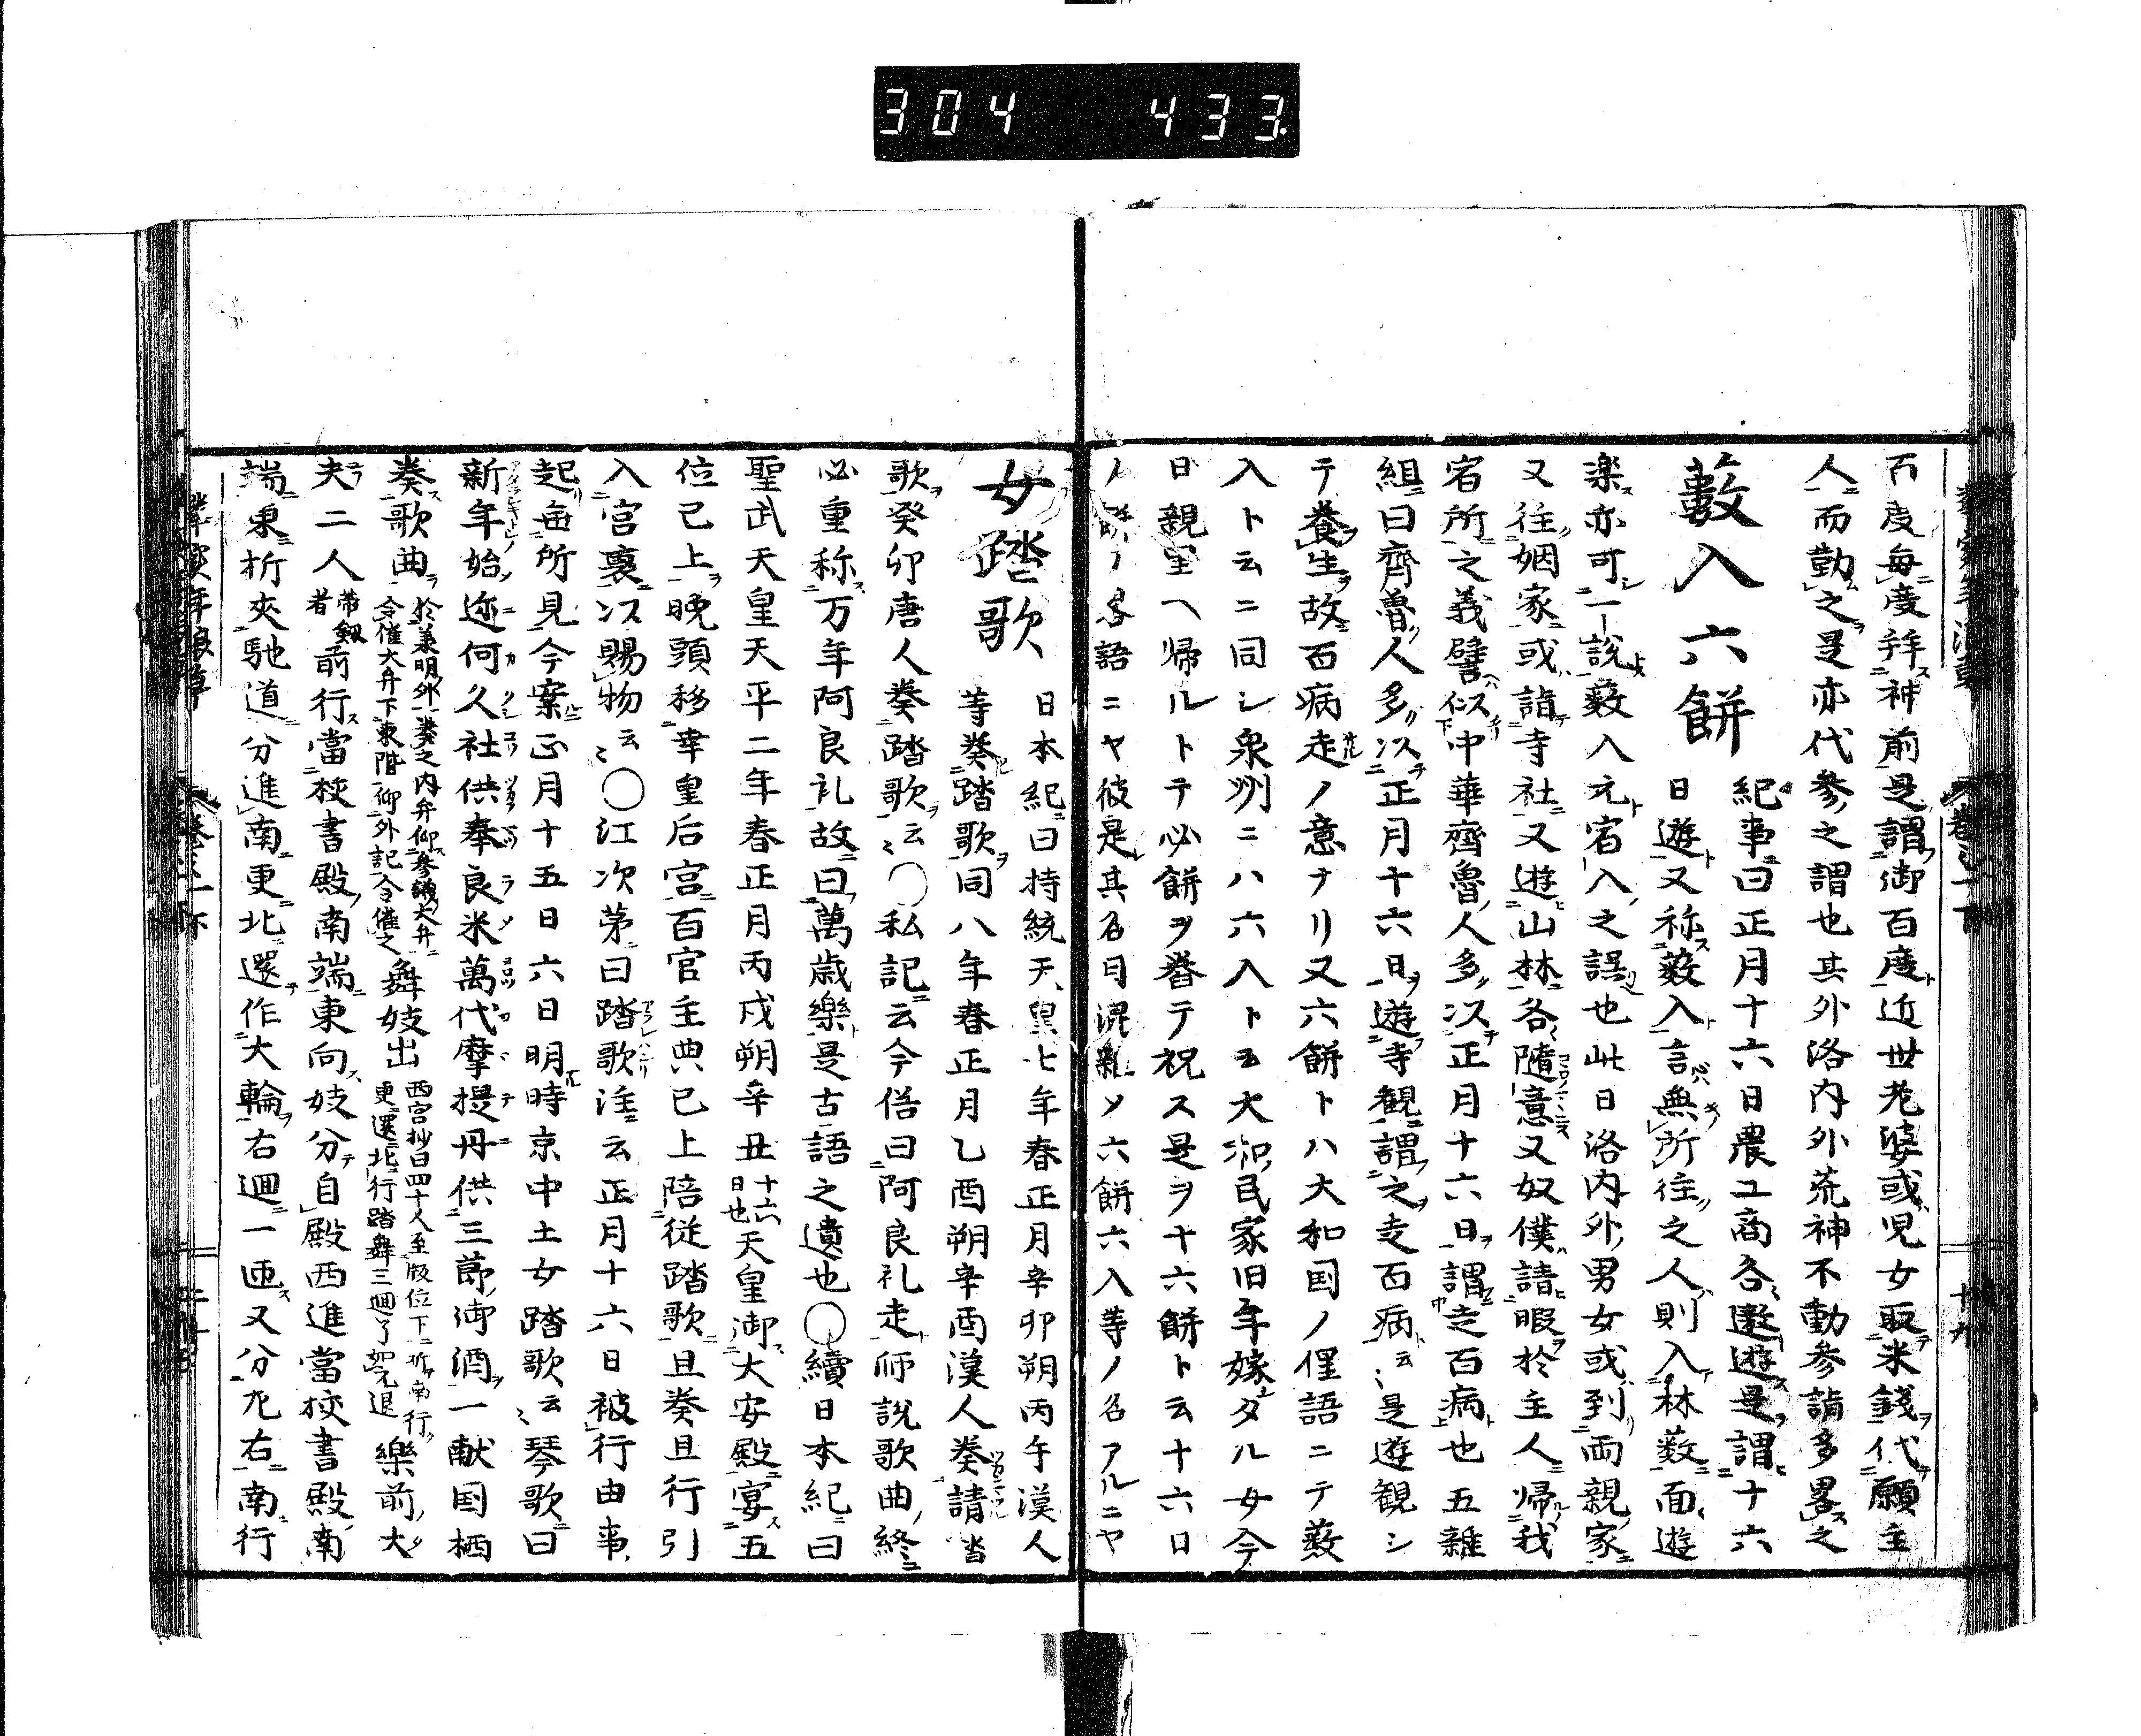 304 433
百度毎度拜神前是謂御百度近世老婆或児女取米錢代願主
人而勤之是亦代參之謂也其外洛内外荒神不動参詣多畧之
藪入六餅
紀事曰正月十六日農工商各遨遊是謂十六
日遊又称薮入言無所往之人則入林薮面遊
楽亦可一説薮入元宿入之誤也此日洛内外男女或到両親家
又往姻家或詣寺社又遊山林各随意又奴僕請暇於主人帰我
宿所之義譬似中華齊魯人多以正月十六日謂走百病也五雜
組曰齊魯人多以正月十六日遊寺観謂之走百病云〻是遊観シ
テ養生故百病走ノ意ナリ又六餅トハ大和国ノ俚語ニテ薮
入ト云ニ同シ泉州ニハ六入ト云大和民家旧年嫁タル女今
日親里ヘ帰ルトテ必餅ヲ搗テ祝ス是ヲ十六餅ト云十六日
ノ餅ノ畧語ニヤ彼是其名目混雜ソ六餅六入等ノ名アルニヤ
女踏歌
日本紀曰持統天皇七年春正月辛卯朔丙午漢人
等奏踏歌同八年春正月乙酉朔辛酉漢人奏請踏
歌癸卯唐人奏踏歌云〻○私記云今俗曰阿良礼走師説歌曲終
必重称万年阿良礼故曰萬歳樂是古語之遺也○續日本紀曰
聖武天皇天平二年春正月丙戌朔辛丑十六日也天皇御大安殿宴五
位已上晩頭移幸皇后宮百官主典已上陪従踏歌且奏且行引
入宮裏以賜物云〻○江次第曰踏歌注云正月十六日被行由事
起毎所見今案正月十五日六日明時京中士女踏歌云〻琴歌曰
新年始迩何久社供奉良米萬代摩提丹供三節御酒一献国栖
奏歌曲於承明外奏之内弁仰参議大弁令催大弁下東階仰外記令催之舞妓出西宮抄曰四十人至版位下折南行更還北行踏舞三廻了如元退樂前大
夫二人帯劔者前行當校書殿南端東向妓分自殿西進當校書殿南
端東折夾馳道分進南更北還作大輪右廻一匝又分尢右南行